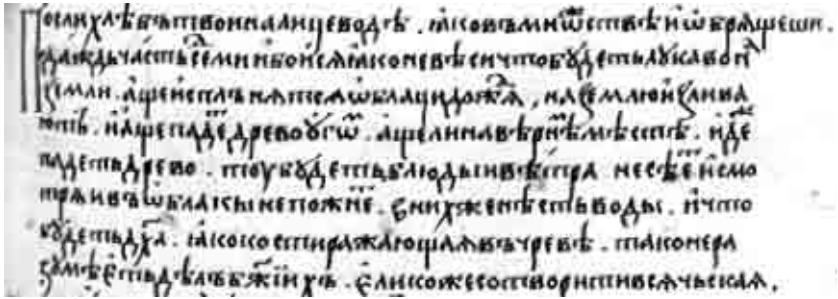 Посли хлѣбъ твои на лице водѣ . ꙗко въ мнѡⷤствѣ д҃нїи ѡбрѧщеши .
даждь чѧсть седми и ѡсми ꙗко не вѣси что бꙋдеть лꙋкаво на
земли . аще исплънѧтсѧ ѡблаци дождѧ , на землю излива
ють . и аще падеⷮ древо ꙋгѡⷨ . аще ли на сѣвѣрⷩѣ мѣстѣ . идеⷤ
падеть древо . тоу бꙋдеть блюдыи вѣтра не сѣеⷮ и смо
трѧи въ ѡблакы не пожнеⷮ . в ниⷯ же нѣсть воды . и что
бꙋдеть дх҃а . ꙗко кости ражающаѧ въ чревѣ . тако не ра
зꙋмѣеть дѣлъ бж҃їихъ . елико же сотворить всѧчьскаꙗ .